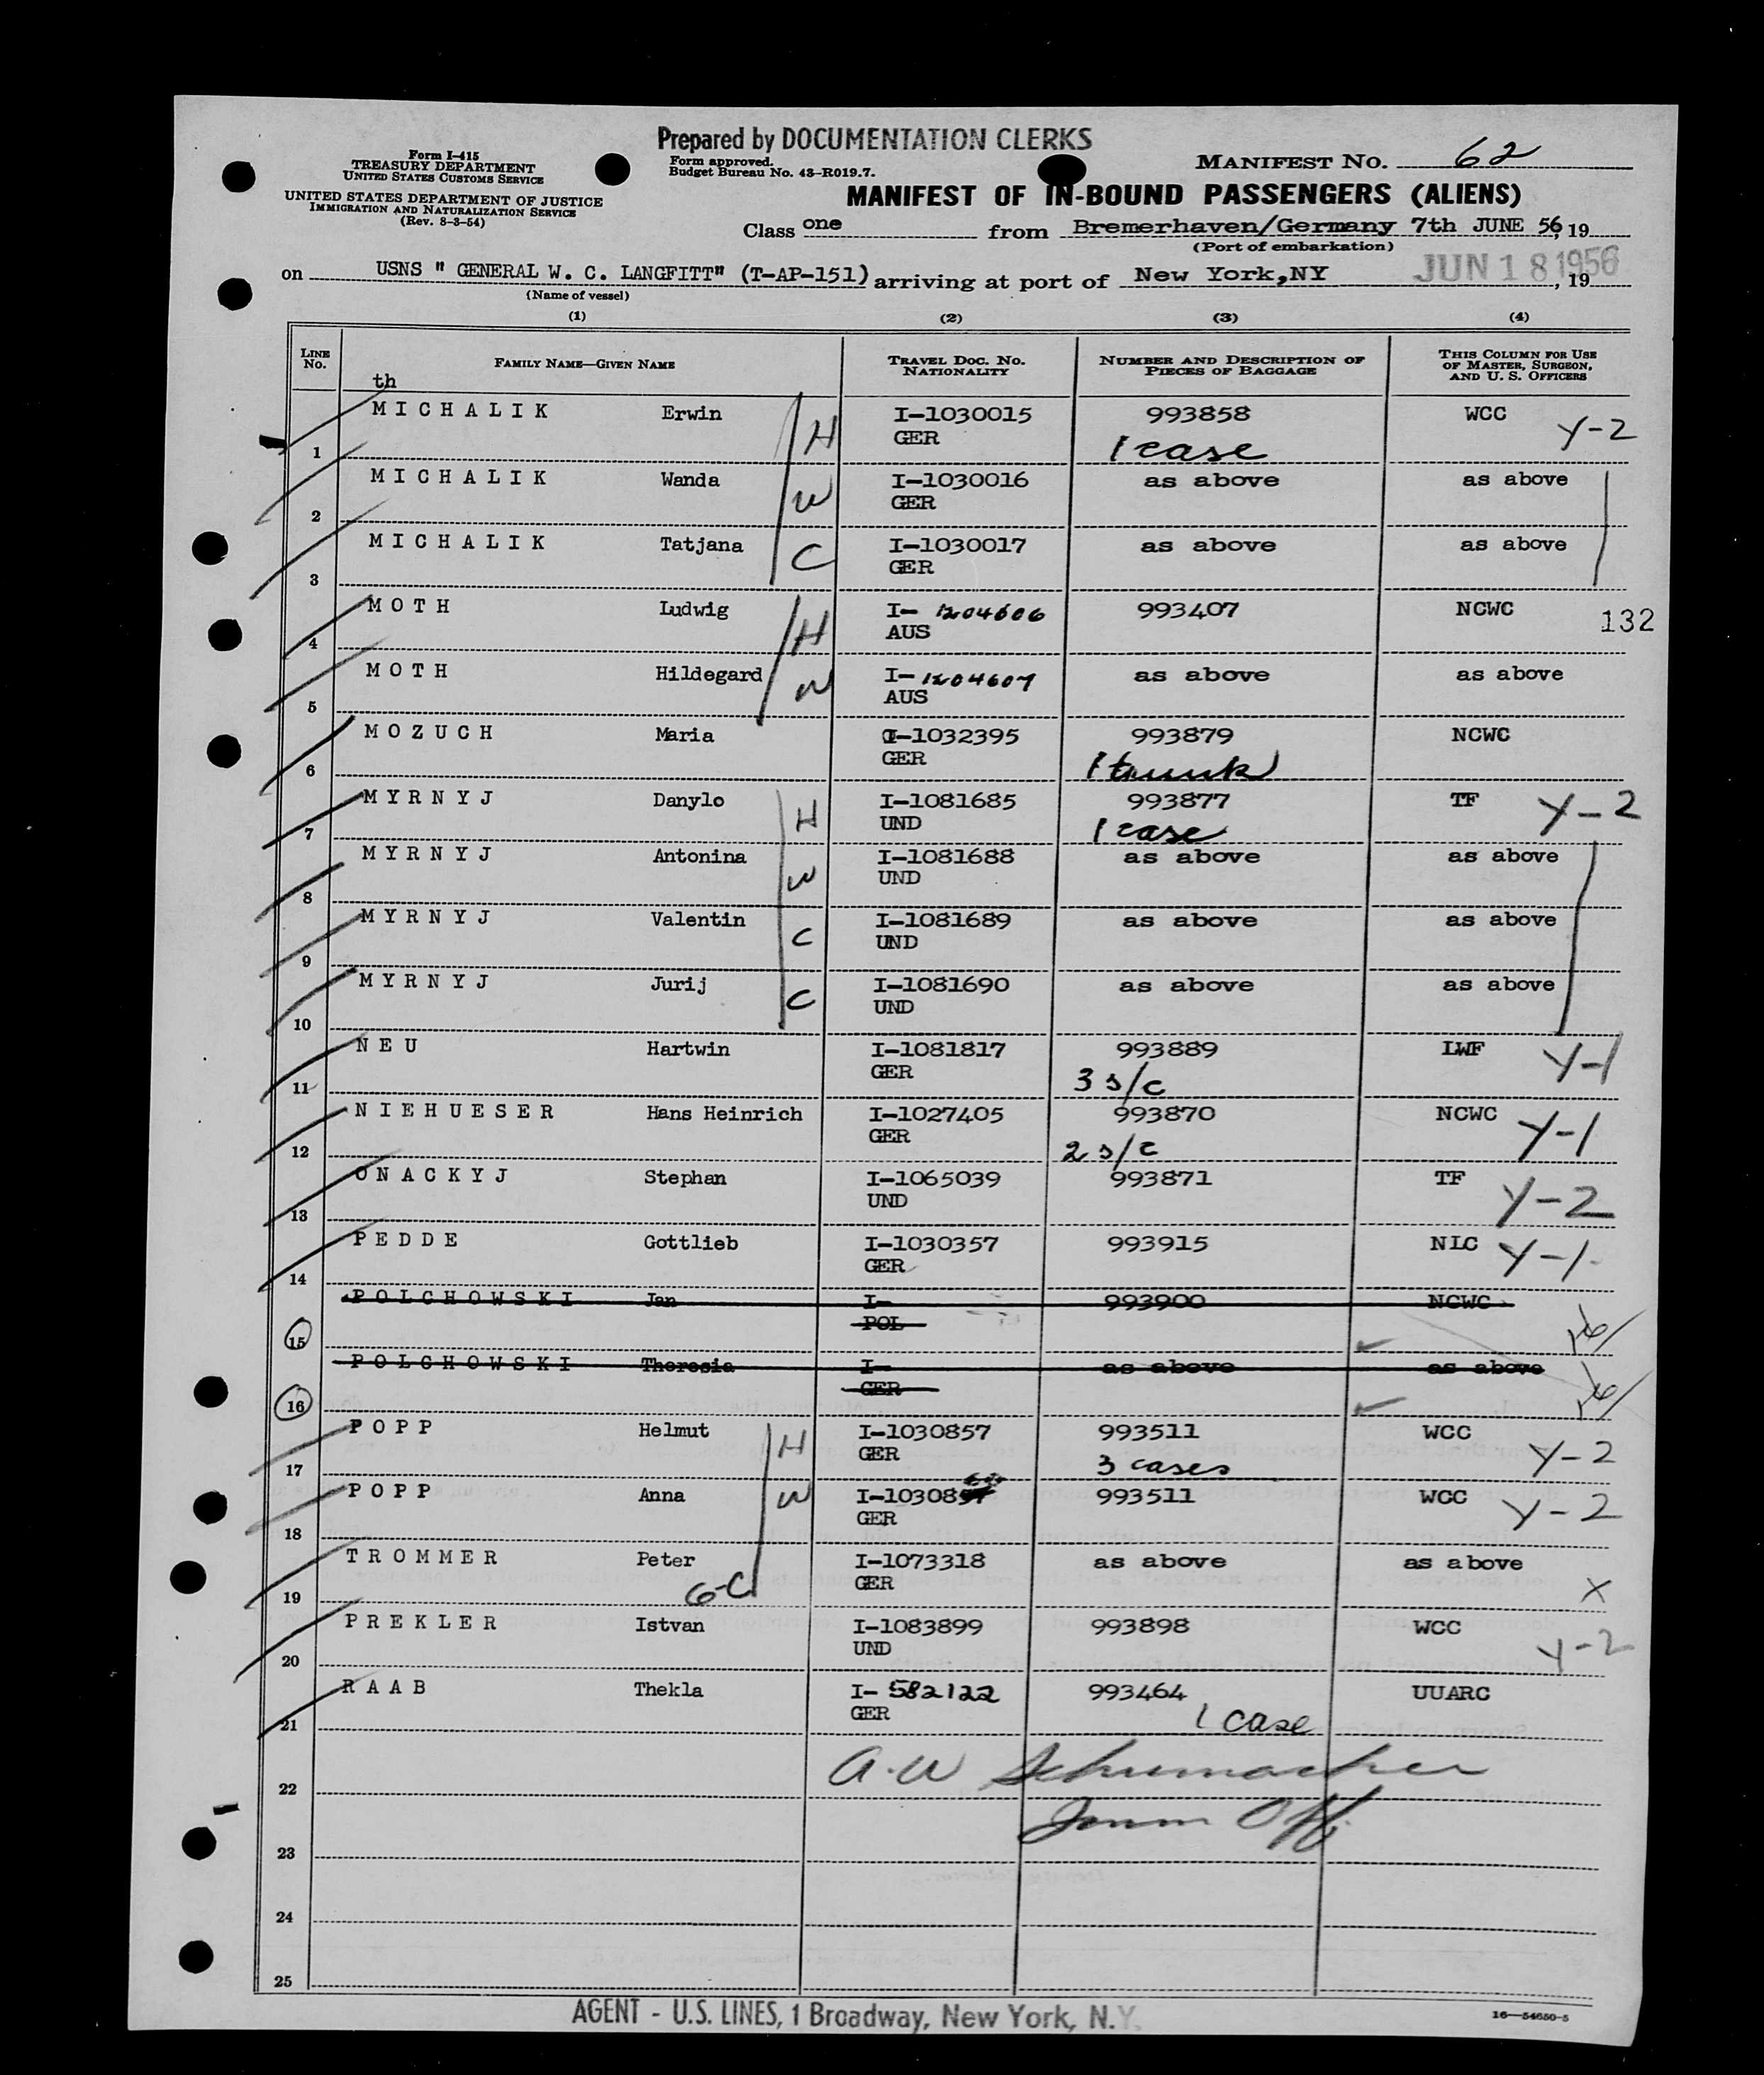 Prepared by DOCUMENTATION CLERKS
Form I-415
TREASURY DEPARTMENT
UNITED STATES CUSTOMS SERVICE
UNITED STATES DEPARTMENT OF JUSTICE
IMMIGRATION AND NATURALIZATION SERVICE
(Rev. 8-3-54)
Form approved.
Budget Bureau No. 43-R019.7.
MANIFEST NO. 62
MANIFEST OF IN-BOUND PASSENGERS (ALIENS)
Class one from Bremerhaven/Germany 7th JUNE 56, 19
(Port of embarkation)
on USNS " GENERAL W. C. LANGFITT" (T-AP-151) arriving at port of New York,NY JUN 18 1956, 19
(Name of vessel)
(1) (2) (3) (4)
LINE NO. FAMILY NAME—GIVEN NAME TRAVEL DOC. NO. NATIONALITY NUMBER AND DESCRIPTION OF PIECES OF BAGGAGE THIS COLUMN FOR USE OF MASTER, SURGEON, AND U. S. OFFICERS
th
MICHALIK Erwin H I-1030015 993858 WCC Y-2
1 GER 1 case
MICHALIK Wanda W I-1030016 as above as above
2 GER
MICHALIK Tatjana C I-1030017 as above as above
3 GER
MOTH Ludwig H I- 1204606 993407 NCWC 132
4 AUS
MOTH Hildegard W I- 1204607 as above as above
5 AUS
MOZUCH Maria I-1032395 993879 NCWC
6 GER 1 trunk
MYRNYJ Danylo H I-1081685 993877 TF Y-2
7 UND 1 case
MYRNYJ Antonina W I-1081688 as above as above
8 UND
MYRNYJ Valentin C I-1081689 as above as above
9 UND
MYRNYJ Jurij C I-1081690 as above as above
10 UND
NEU Hartwin I-1081817 993889 LWF Y-1
11 GER 3 s/c
NIEHUESER Hans Heinrich I-1027405 993870 NCWC Y-1
12 GER 2 s/c
ONACKYJ Stephan I-1065039 993871 TF Y-2
13 UND
PEDDE Gottlieb I-1030357 993915 NLC Y-1
14 GER
POLCHOWSKI Jan I- 993900 NCWC
15 POL
POLCHOWSKI Theresia I- as above as above
16 GER
POPP Helmut H I-1030857 993511 WCC Y-2
17 GER 3 cases
POPP Anna W I-1030857 993511 WCC Y-2
18 GER
TROMMER Peter I-1073318 as above as above
19 G-C GER X
PREKLER Istvan I-1083899 993898 WCC Y-2
20 UND
RAAB Thekla I- 582122 993464 UUARC
21 GER 1 case
A.W Schumacher
22
Imm Off.
23
24
25
AGENT - U.S. LINES, 1 Broadway, New York, N.Y.
16—54650-5